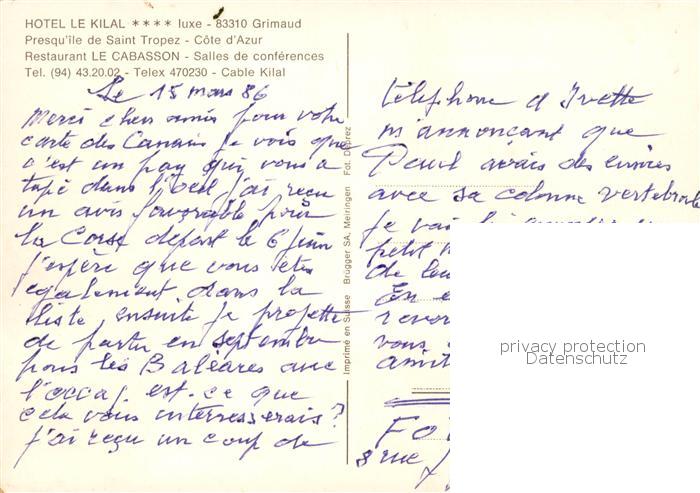 HOTEL LE KILAL ★★★★ luxe - 83310 Grimaud
Presqu'île de Saint Tropez - Côte d'Azur
Restaurant LE CABASSON - Salles de conférences
Tel. (94) 43.20.02 - Telex 470230 - Cable Kilal
Le 15 mars 86
Merci chers amis pour votre
carte des Canaries je vois que
c'est un pay qui vous a
tapé dans l'oeil j'ai reçu
un avis favorable pour
la Corse départ le 6 juin
j'espère que vous êtes
egalement dans la
liste ensuite je projette
de partir en septembre
pour les Baléares avec
l'occaj. est-ce que
cela vous interesserais?
j'ai reçu un coup de
Imprimé en Suisse Brügger SA, Meiringen Fot. Duprez
téléphone d'Yvette
m'annonçant que
Paul avais des ennuies
avec sa colonne vertebrale
je vais
petit
de
En
revoir
vous
amit
8 rue
privacy protection
Datenschutz